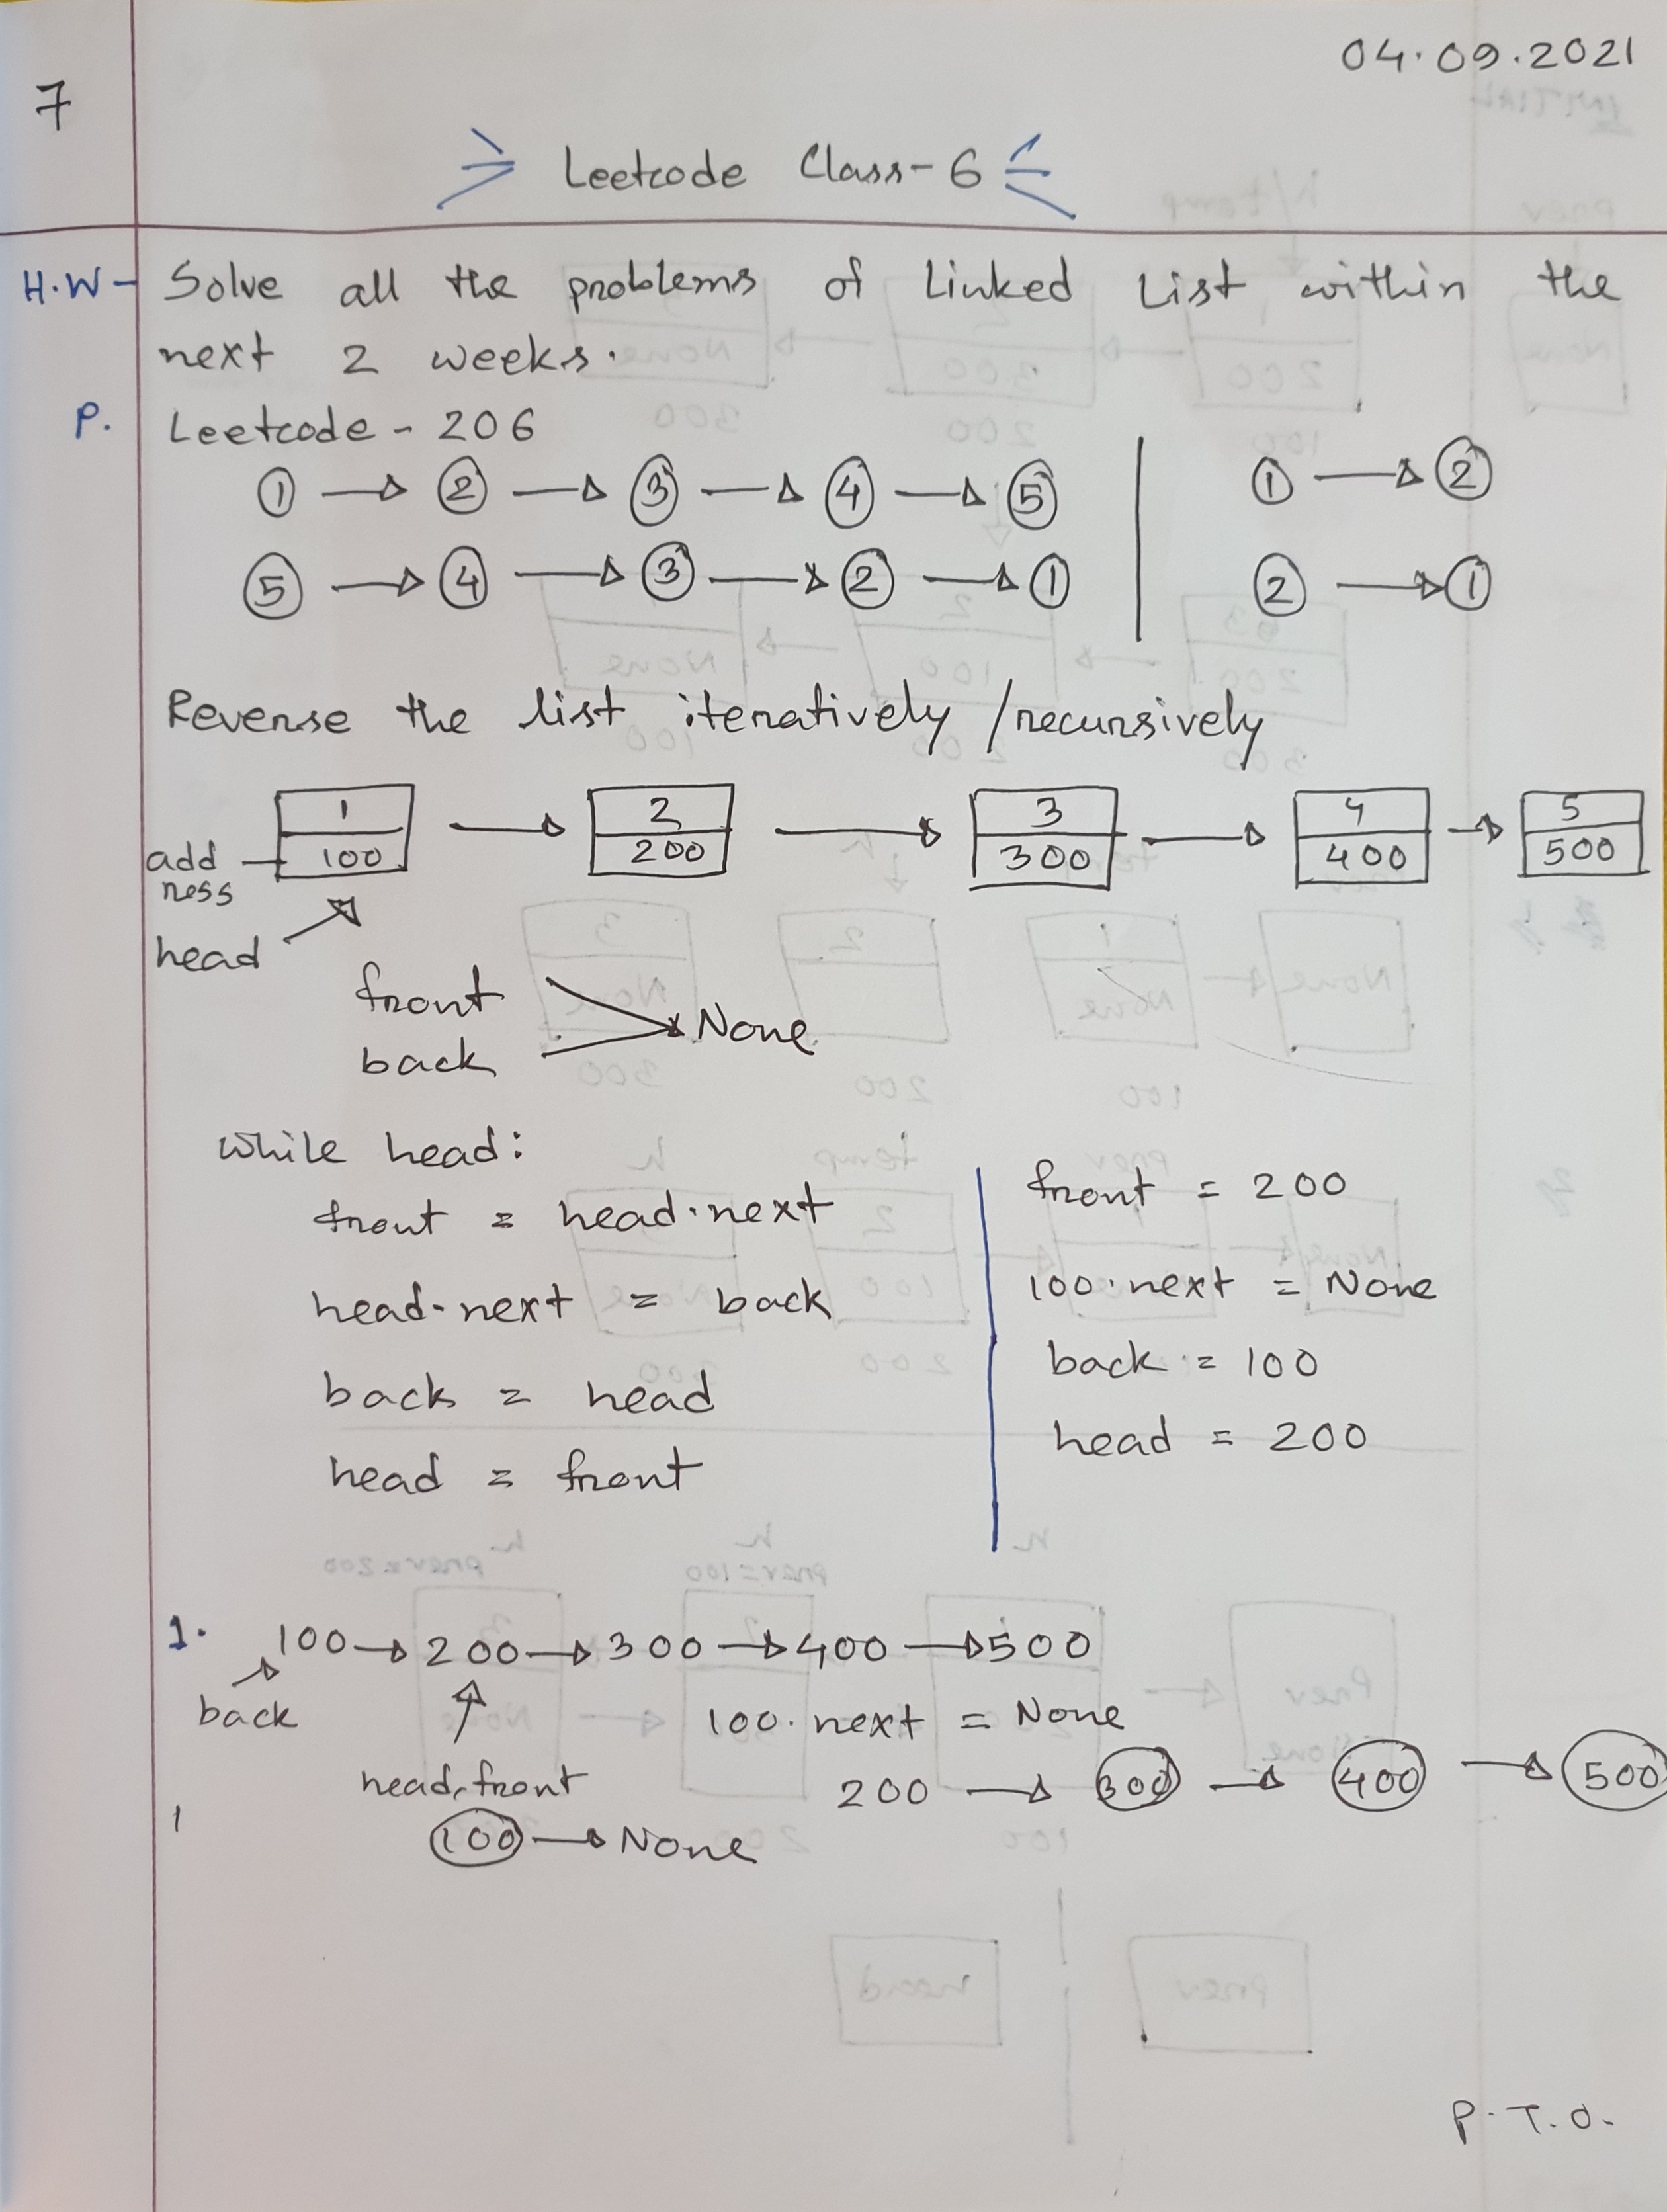 04.09.2021
7
Leetcode Class-6
H.W- Solve all the problems of Linked List within the
next 2 weeks.
P. Leetcode - 206
1 → 2 → 3 → 4 → 5
1 → 2
5 → 4 → 3 → 2 → 1
2 → 1
Reverse the list iteratively / recursively
1 → 2 → 3 → 4 → 5
add
ress
100 200 300 400 500
head
front
back
None
while head:
front = head.next
head.next = back
back = head
head = front
front = 200
100.next = None
back = 100
head = 200
1. 100 → 200 → 300 → 400 → 500
back
100.next = None
head, front
200 → 300 → 400 → 500
100 → None
P.T.O.